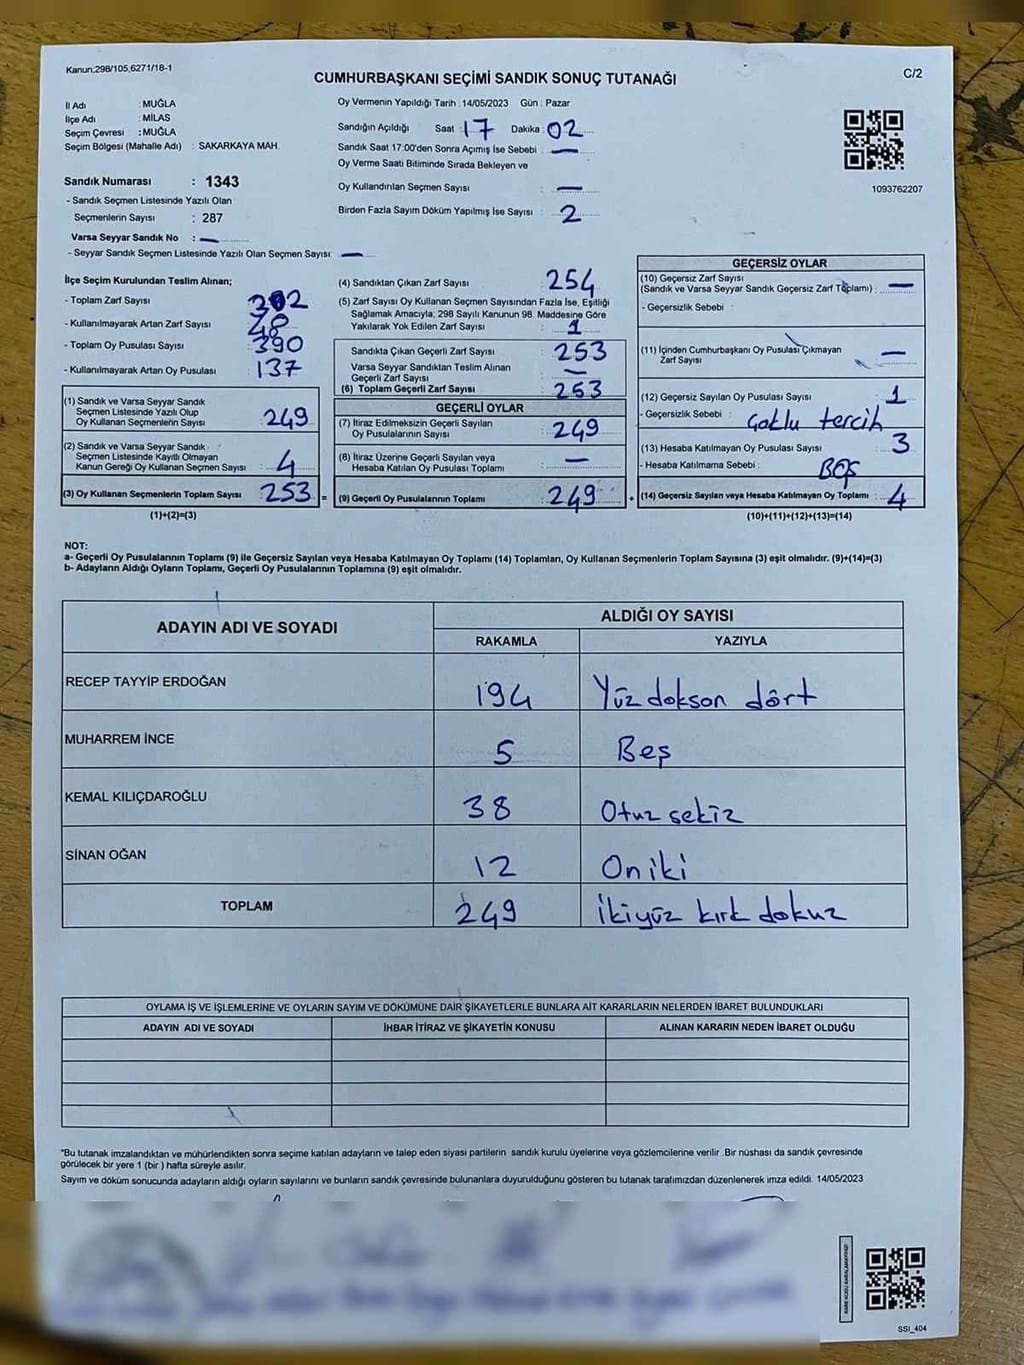 Kanun;298/105,6271/18-1
CUMHURBAŞKANI SEÇİMİ SANDIK SONUÇ TUTANAĞI
C/2
İl Adı : MUĞLA
İlçe Adı : MİLAS
Seçim Çevresi : MUĞLA
Seçim Bölgesi (Mahalle Adı) : SAKARKAYA MAH.
Sandık Numarası : 1343
- Sandık Seçmen Listesinde Yazılı Olan
Seçmenlerin Sayısı : 287
Varsa Seyyar Sandık No : —
- Seyyar Sandık Seçmen Listesinde Yazılı Olan Seçmen Sayısı: —
Oy Vermenin Yapıldığı Tarih : 14/05/2023 Gün : Pazar
Sandığın Açıldığı Saat : 17 Dakika : 02
Sandık Saat 17:00'den Sonra Açımış İse Sebebi : —
Oy Verme Saati Bitiminde Sırada Bekleyen ve
Oy Kullandırılan Seçmen Sayısı : —
Birden Fazla Sayım Döküm Yapılmış İse Sayısı : 2
1093762207
İlçe Seçim Kurulundan Teslim Alınan;
- Toplam Zarf Sayısı
- Kullanılmayarak Artan Zarf Sayısı
- Toplam Oy Pusulası Sayısı : 390
- Kullanılmayarak Artan Oy Pusulası : 137
(1) Sandık ve Varsa Seyyar Sandık
Seçmen Listesinde Yazılı Olup
Oy Kullanan Seçmenlerin Sayısı : 249
(2) Sandık ve Varsa Seyyar Sandık
Seçmen Listesinde Kayıtlı Olmayan
Kanun Gereği Oy Kullanan Seçmen Sayısı : 4
(3) Oy Kullanan Seçmenlerin Toplam Sayısı : 253 =
(1)+(2)=(3)
(4) Sandıktan Çıkan Zarf Sayısı : 254
(5) Zarf Sayısı Oy Kullanan Seçmen Sayısından Fazla İse, Eşitliği
Sağlamak Amacıyla; 298 Sayılı Kanunun 98. Maddesine Göre
Yakılarak Yok Edilen Zarf Sayısı : 1
Sandıkta Çıkan Geçerli Zarf Sayısı : 253
Varsa Seyyar Sandıktan Teslim Alınan
Geçerli Zarf Sayısı : —
(6) Toplam Geçerli Zarf Sayısı : 253
GEÇERLİ OYLAR
(7) İtiraz Edilmeksizin Geçerli Sayılan
Oy Pusulalarının Sayısı : 249
(8) İtiraz Üzerine Geçerli Sayılan veya
Hesaba Katılan Oy Pusulası Toplamı : —
(9) Geçerli Oy Pusulalarının Toplamı : 249 +
GEÇERSİZ OYLAR
(10) Geçersiz Zarf Sayısı
(Sandık ve Varsa Seyyar Sandık Geçersiz Zarf Toplamı) : —
- Geçersizlik Sebebi :
(11) İçinden Cumhurbaşkanı Oy Pusulası Çıkmayan
Zarf Sayısı : —
(12) Geçersiz Sayılan Oy Pusulası Sayısı : 1
- Geçersizlik Sebebi : Çoklu tercih
(13) Hesaba Katılmayan Oy Pusulası Sayısı : 3
- Hesaba Katılmama Sebebi : BOŞ
(14) Geçersiz Sayılan veya Hesaba Katılmayan Oy Toplamı : 4
(10)+(11)+(12)+(13)=(14)
NOT:
a- Geçerli Oy Pusulalarının Toplamı (9) ile Geçersiz Sayılan veya Hesaba Katılmayan Oy Toplamı (14) Toplamları, Oy Kullanan Seçmenlerin Toplam Sayısına (3) eşit olmalıdır. (9)+(14)=(3)
b- Adayların Aldığı Oyların Toplamı, Geçerli Oy Pusulalarının Toplamına (9) eşit olmalıdır.
ADAYIN ADI VE SOYADI
ALDIĞI OY SAYISI
RAKAMLA YAZIYLA
RECEP TAYYİP ERDOĞAN 194 Yüz dokson dört
MUHARREM İNCE 5 Beş
KEMAL KILIÇDAROĞLU 38 Otuz sekiz
SİNAN OĞAN 12 On iki
TOPLAM 249 ikiyüz kırk dokuz
OYLAMA İŞ VE İŞLEMLERİNE VE OYLARIN SAYIM VE DÖKÜMÜNE DAİR ŞİKAYETLERLE BUNLARA AİT KARARLARIN NELERDEN İBARET BULUNDUKLARI
ADAYIN ADI VE SOYADI İHBAR İTİRAZ VE ŞİKAYETİN KONUSU ALINAN KARARIN NEDEN İBARET OLDUĞU
*Bu tutanak imzalandıktan ve mühürlendikten sonra seçime katılan adayların ve talep eden siyasi partilerin sandık kurulu üyelerine veya gözlemcilerine verilir .Bir nüshası da sandık çevresinde
görülecek bir yere 1 (bir ) hafta süreyle asılır.
Sayım ve döküm sonucunda adayların aldığı oyların sayılarını ve bunların sandık çevresinde bulunanlara duyurulduğunu gösteren bu tutanak tarafımızdan düzenlenerek imza edildi. 14/05/2023
SSI_404